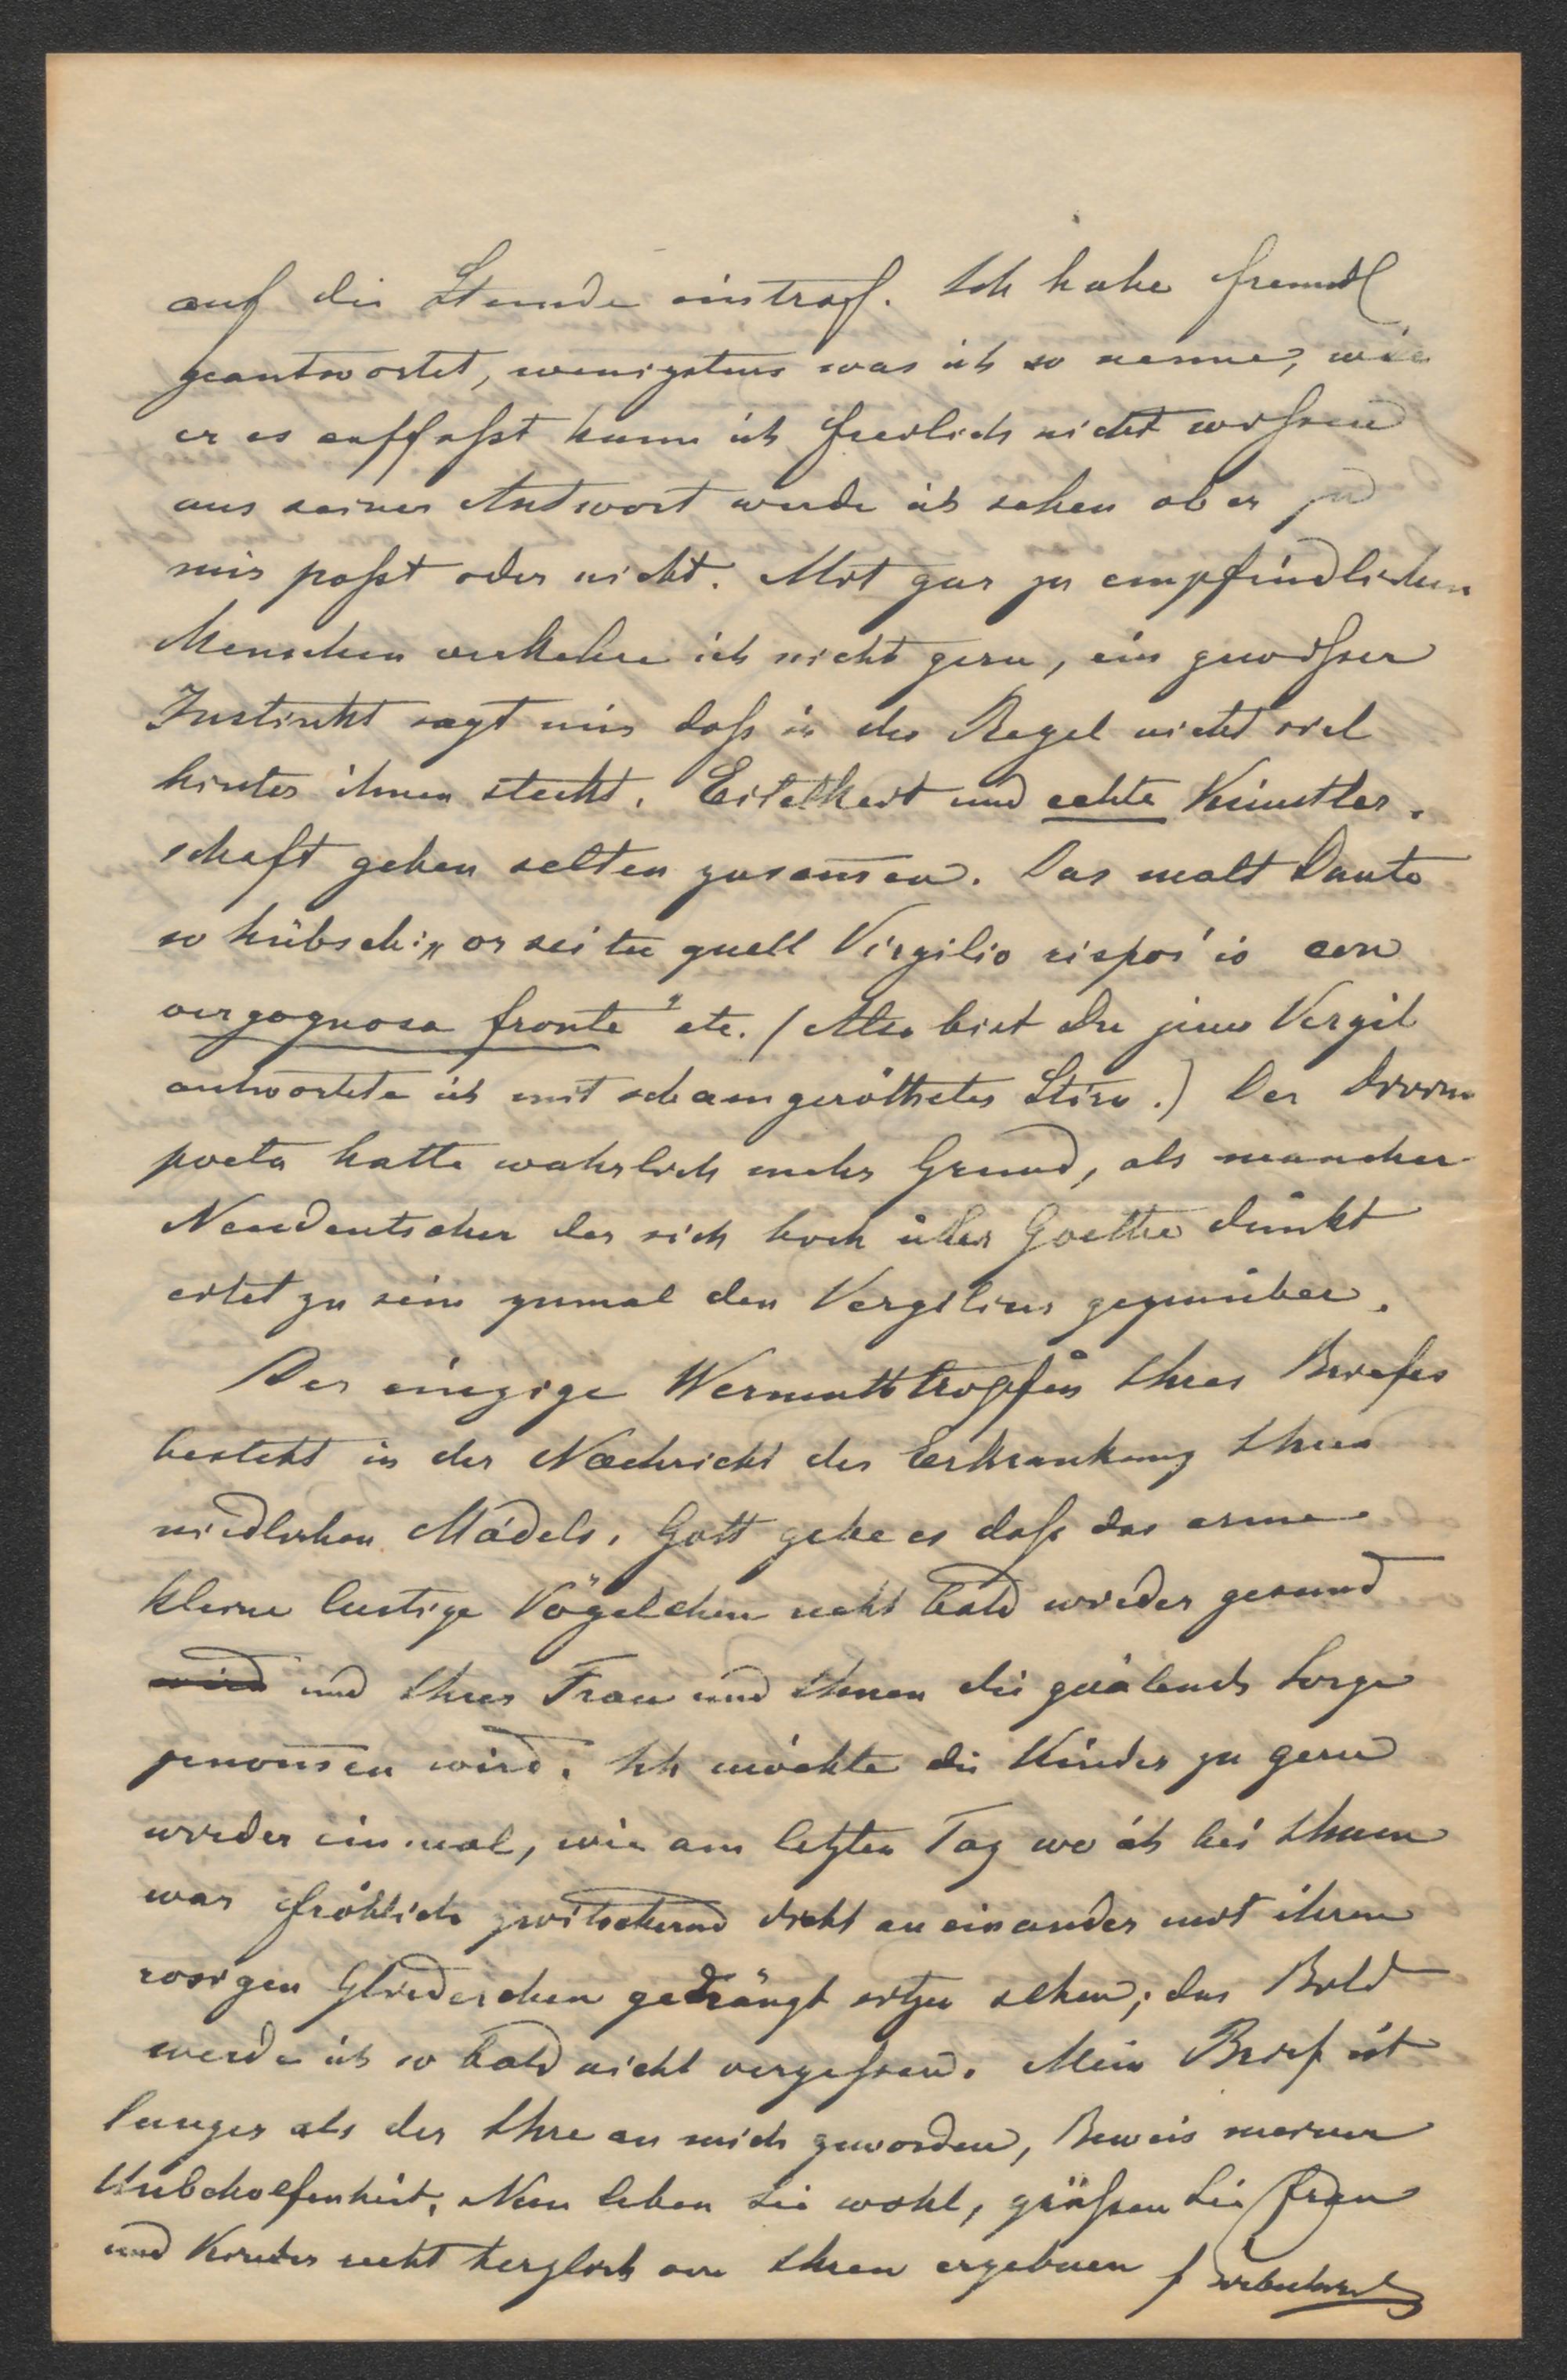 auf die Stunde eintraf. Ich habe freundl
geantwortet, wenigstens was ich so nenne, wie
er es auffaßt kann ich freilich nicht wißen
aus seiner Antwort werde ich sehen ob er zu
mir paßt oder nicht. Mit gar zu empfindlichen
Menschen verkehre ich nicht gern, ein gewißer
Instinkt sagt mir daß in der Regel nicht viel
hinter ihnen steckt. Eitelkeit und echte Künstler-
schaft gehen selten zusam̅en. Das malt Dante
so hübsch: „or sei tu quell Virgilio rispos' io con
vergognosa fronte" etc. (Also bist Du jener Vergil
antwortete ich mit schamgerötheter Stirn.) Der Divino
poeta hatte wahrlich mehr Grund, als mancher
Neudeutscher der sich hoch über Goethe dünkt
eitel zu sein zumal den Vergilius gegenüber.
Der einzige Wermuthtropfen Ihres Briefes
besteht in der Nachricht der Erkrankung Ihres
niedlichen Mädels. Gott gebe es daß das arme
kleine lustige Vögelchen recht bald wieder gesund
wird und Ihrer Frau und Ihnen die quälende Sorge
genom̅en wird. Ich möchte die Kinder zu gern
wieder einmal, wie am letzten Tag wo ich bei Ihnen
war fröhlich zwitschernd dicht an einander mit ihren
rosigen Gliederchen gedrängt sitzen sehen; das Bild
werde ich so bald nicht vergeßen. Mein Brief ist
länger als der Ihre an mich geworden, Beweis meiner
Unbeholfenheit. Nun leben Sie wohl, grüßen Sie Frau
und Kinder recht herzlich von Ihrem ergebenen